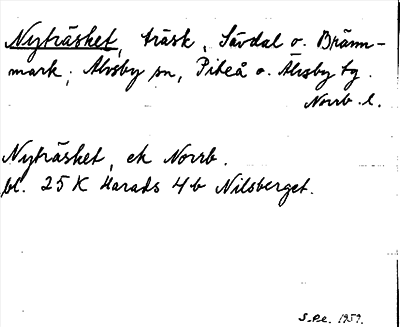 Nyträsket, träsk, Sävdal o. Bränn-
mark, Älvsby sn, Piteå o. Älvsby tg.
Norrb. l.
Nyträsket, ek Norrb.
bl. 25 K Harads 4 b Nilsberget.
S.P.e. 1959.